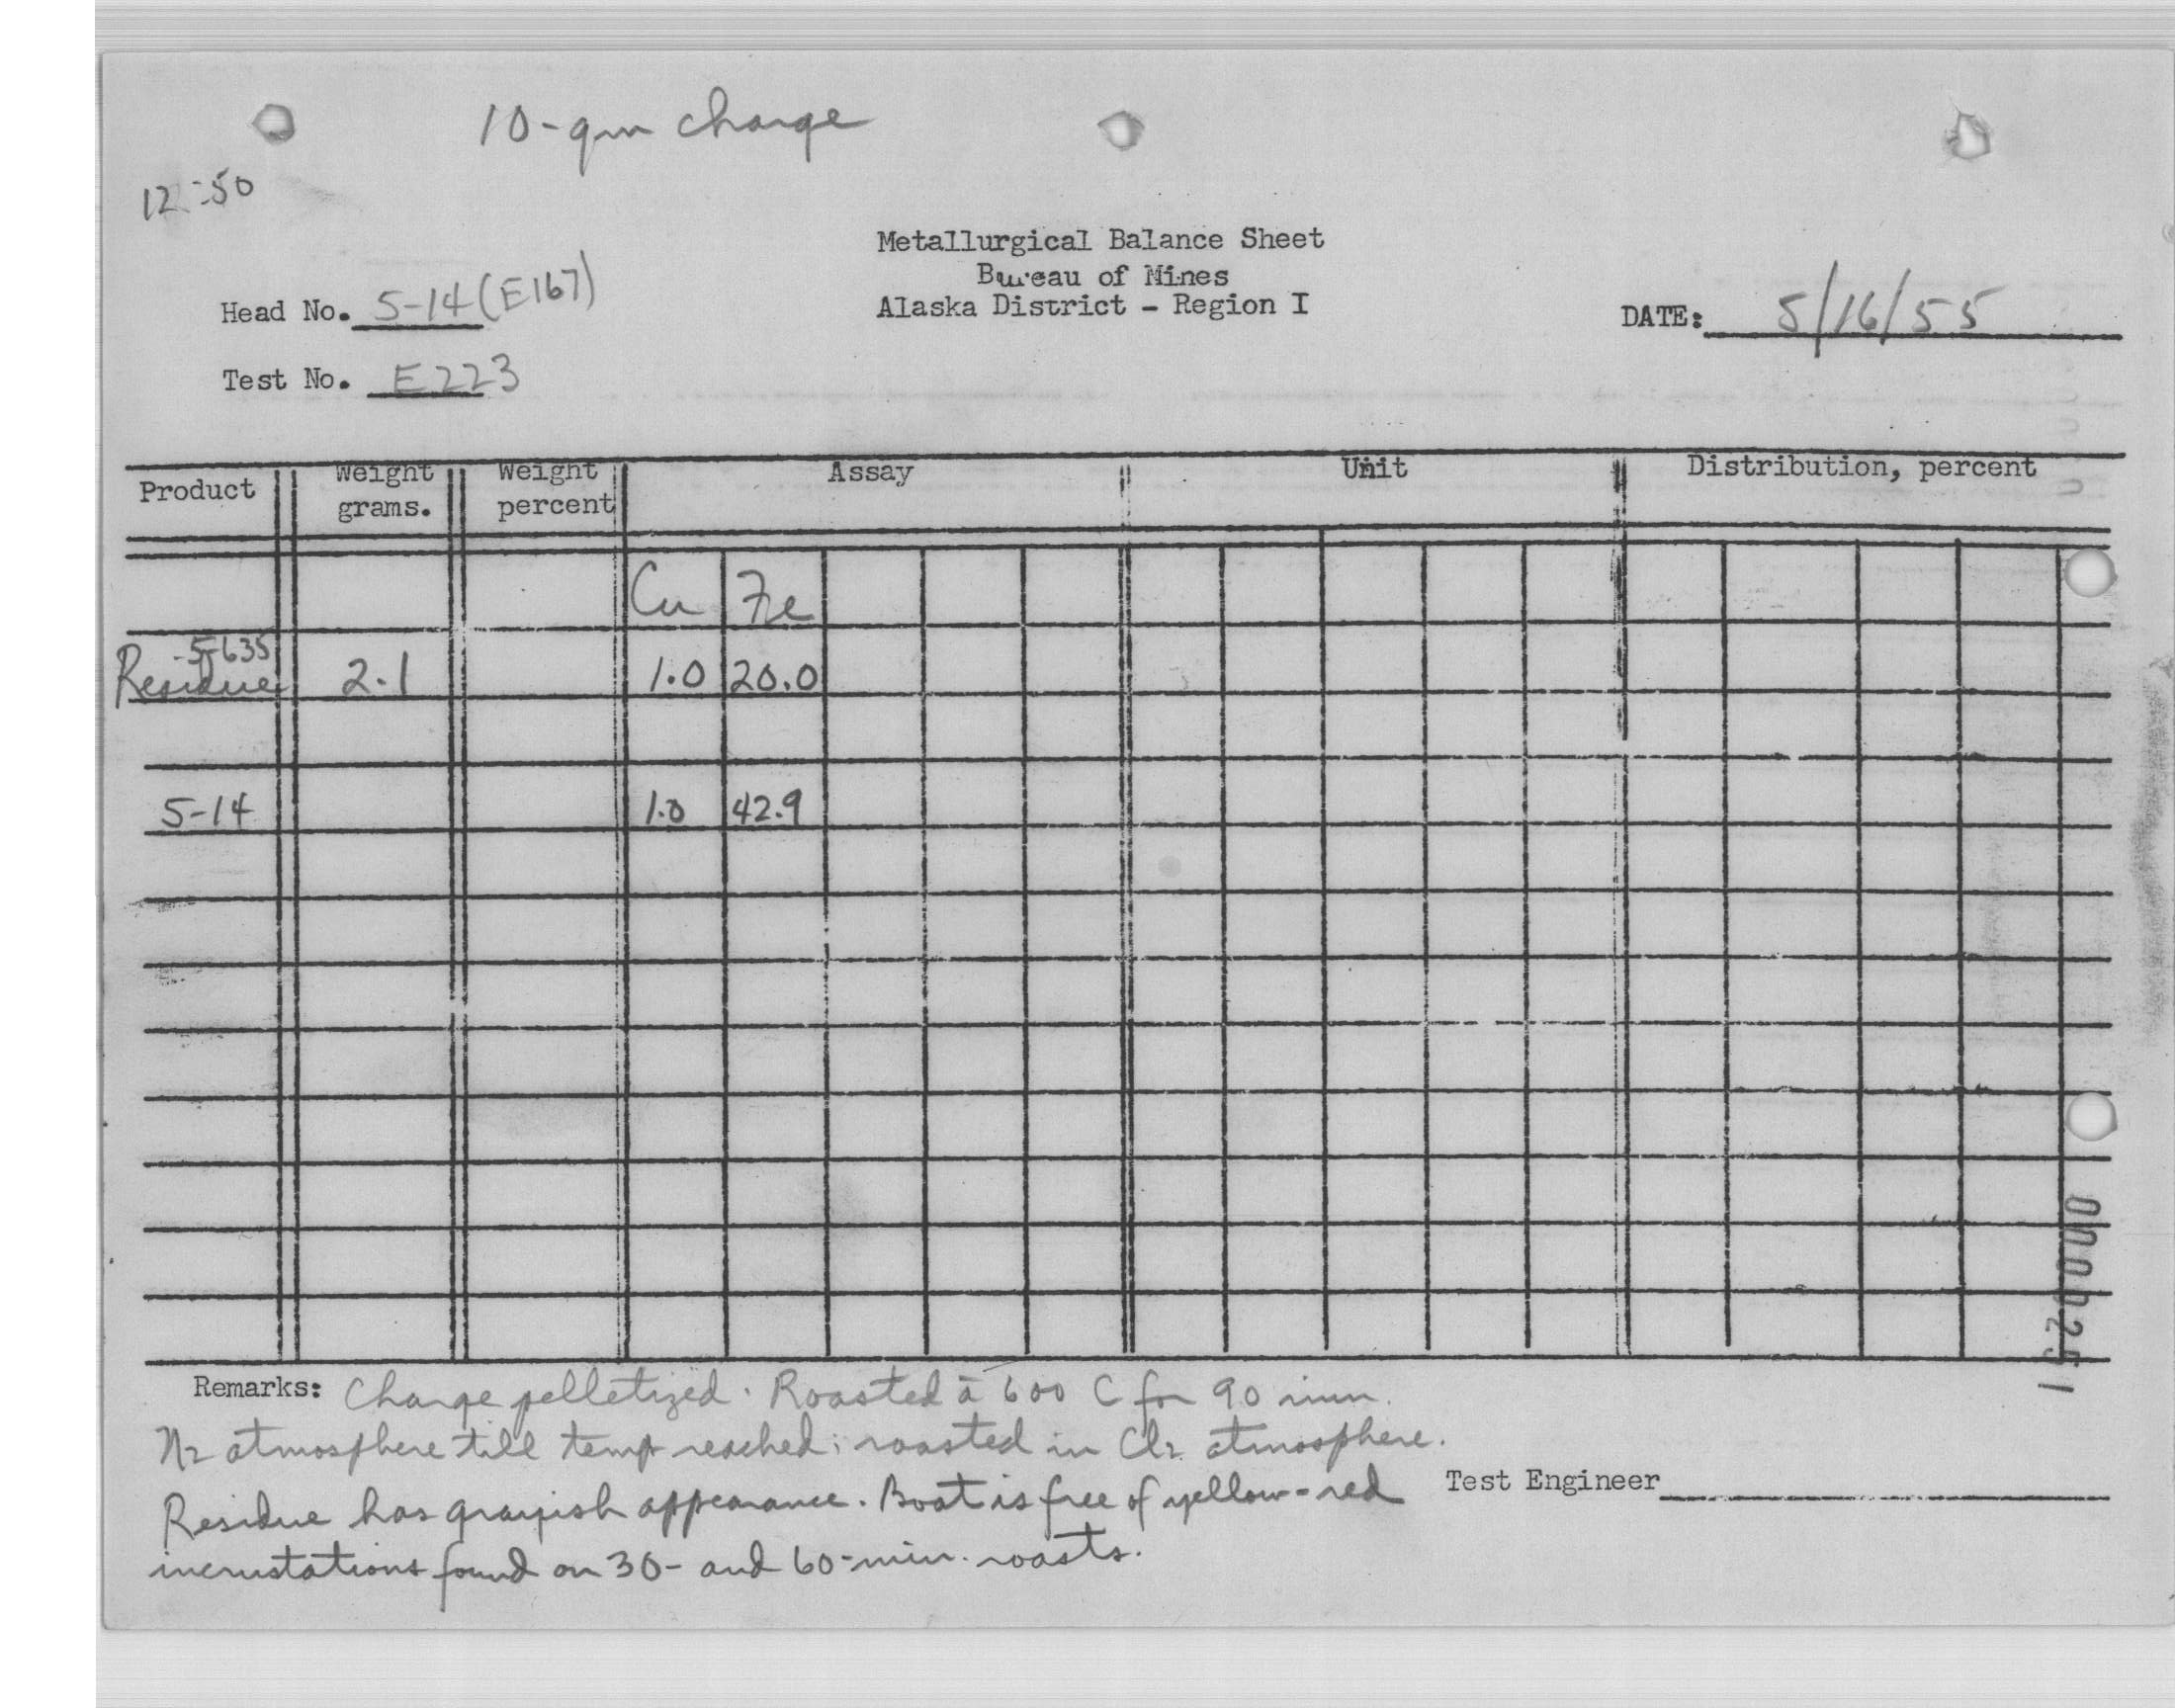 10-gm charge
12:50
Metallurgical Balance Sheet
Bureau of Mines
Alaska District - Region I
Head No. 5-14 (E167)
DATE: 5/16/55
Test No. E223
Product Weight grams. Weight percent Assay Unit Distribution, percent
Cu Fe
5-635
Residue 2.1 1.0 20.0
5-14 1.0 42.9
0000251
Remarks: Charge pelletized. Roasted @ 600 C for 90 min.
N2 atmosphere till temp reached; roasted in Cl2 atmosphere.
Residue has grayish appearance. Boat is free of yellow-red
incrustations found on 30- and 60-min. roasts.
Test Engineer